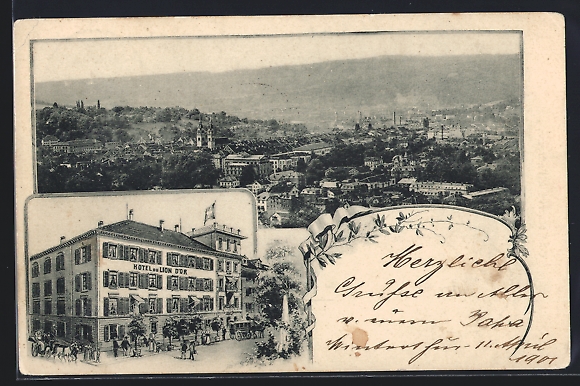 HOTEL DU LION D'OR
Herzliche
Grüße an Alle
v. eurem Papa
Winterthur 11. April
1901